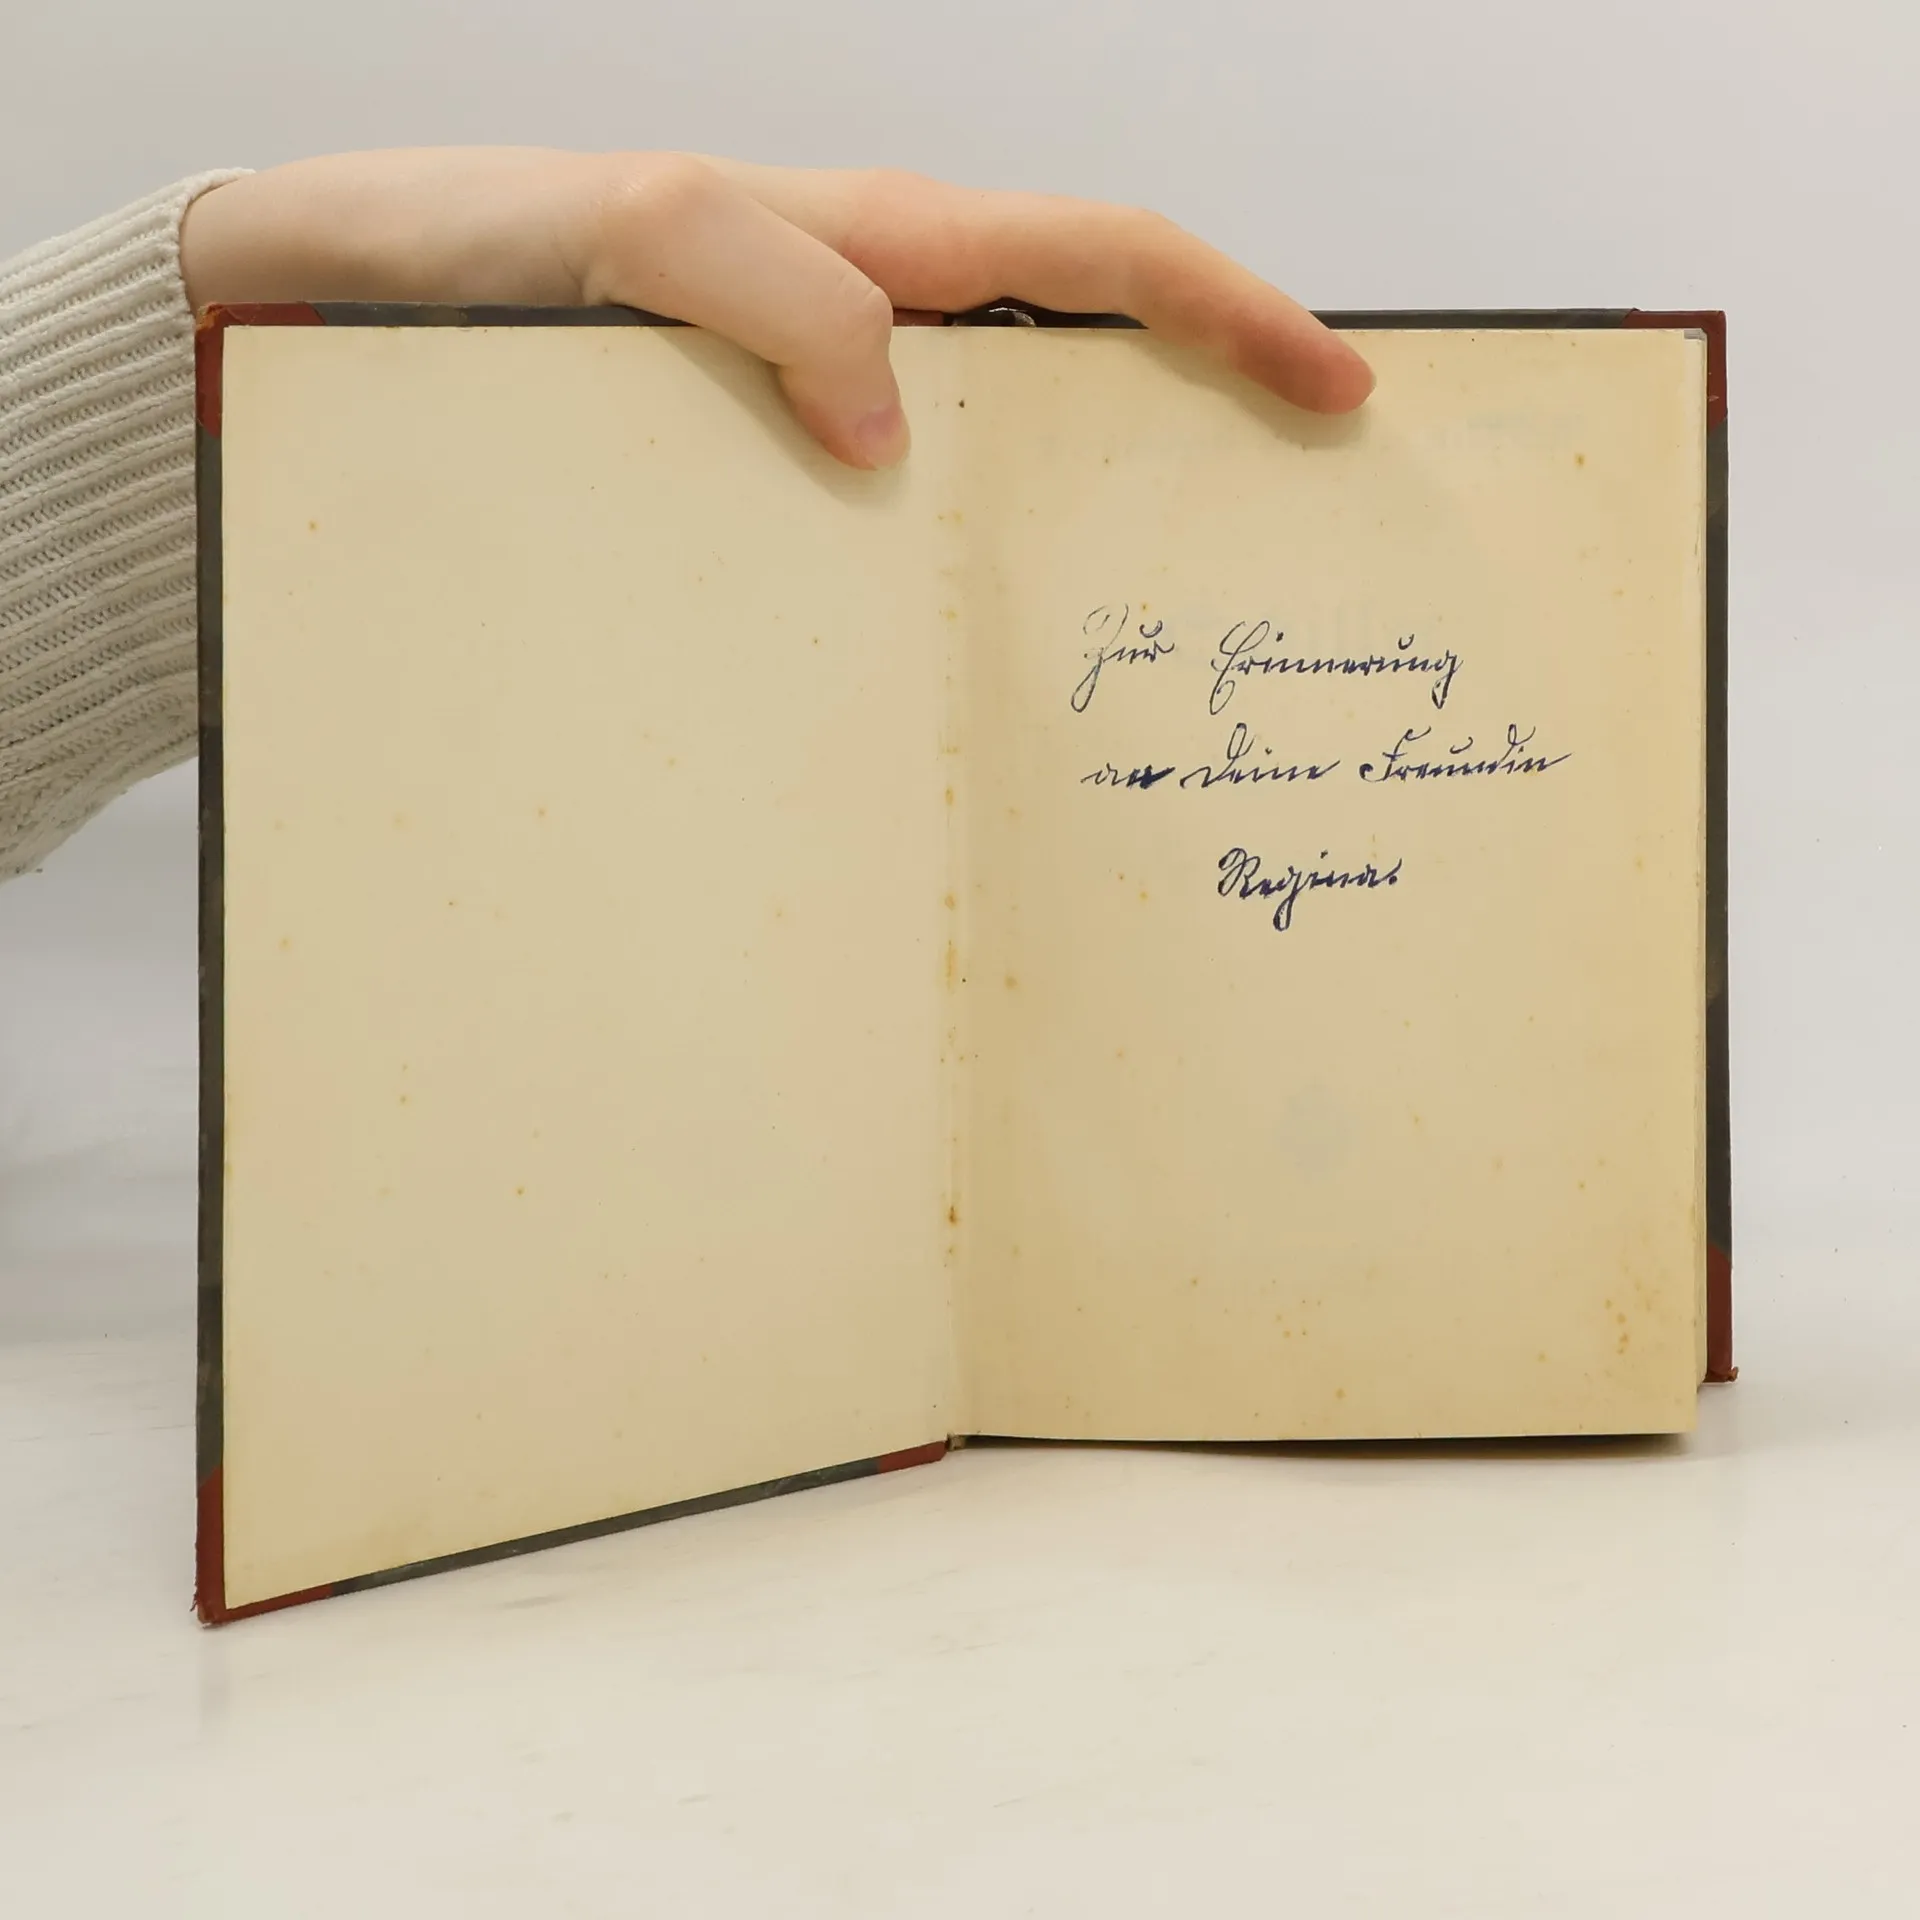 Zur Erinnerung
an Deine Freundin
Regina.